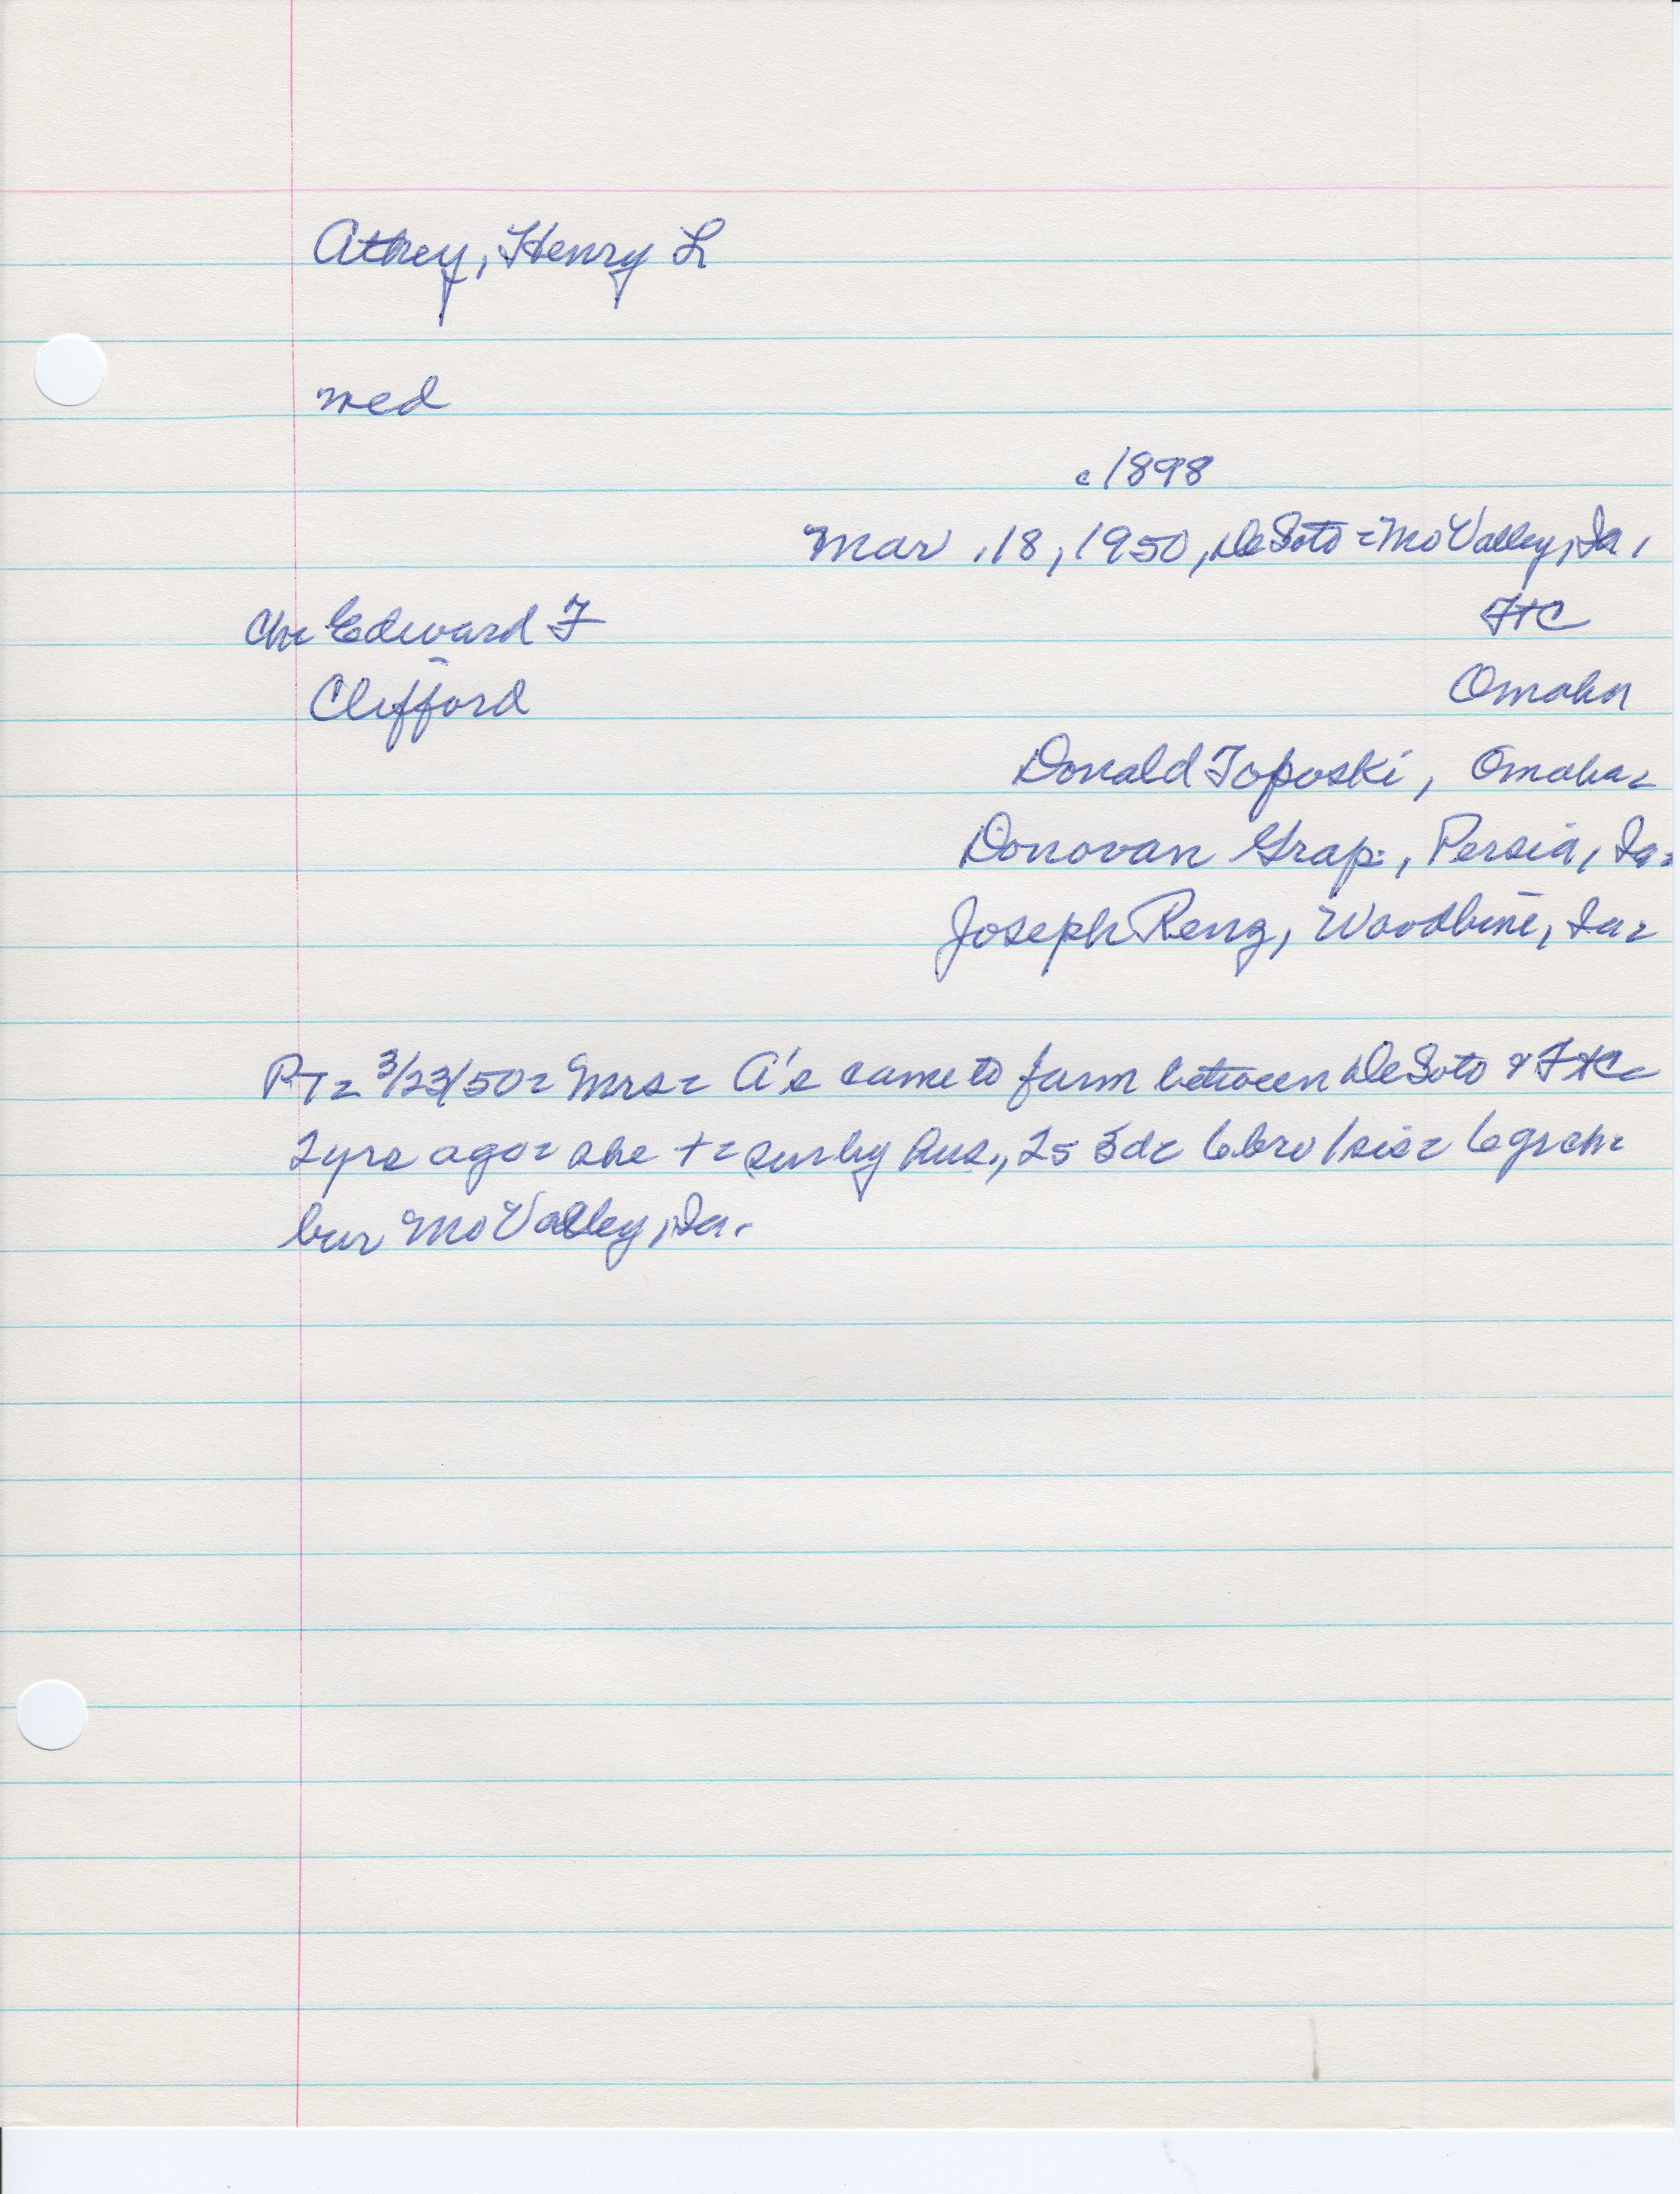 Athey, Henry L
med
c1898
Mar. 18, 1950, DeSoto = Mo Valley, Ia.
Chr Edward F FtC
Clifford Omaha
Donald Toposki, Omaha=
Donovan Grap., Persia, Ia.
Joseph Renz, Woodbine, Ia=
PT= 3/23/50= Mrs= A's came to farm between DeSoto & FtC=
2yrs ago= she += sur by hus., 2s 3d= 6bro 1sis= 6grch=
bur Mo Valley, Ia.